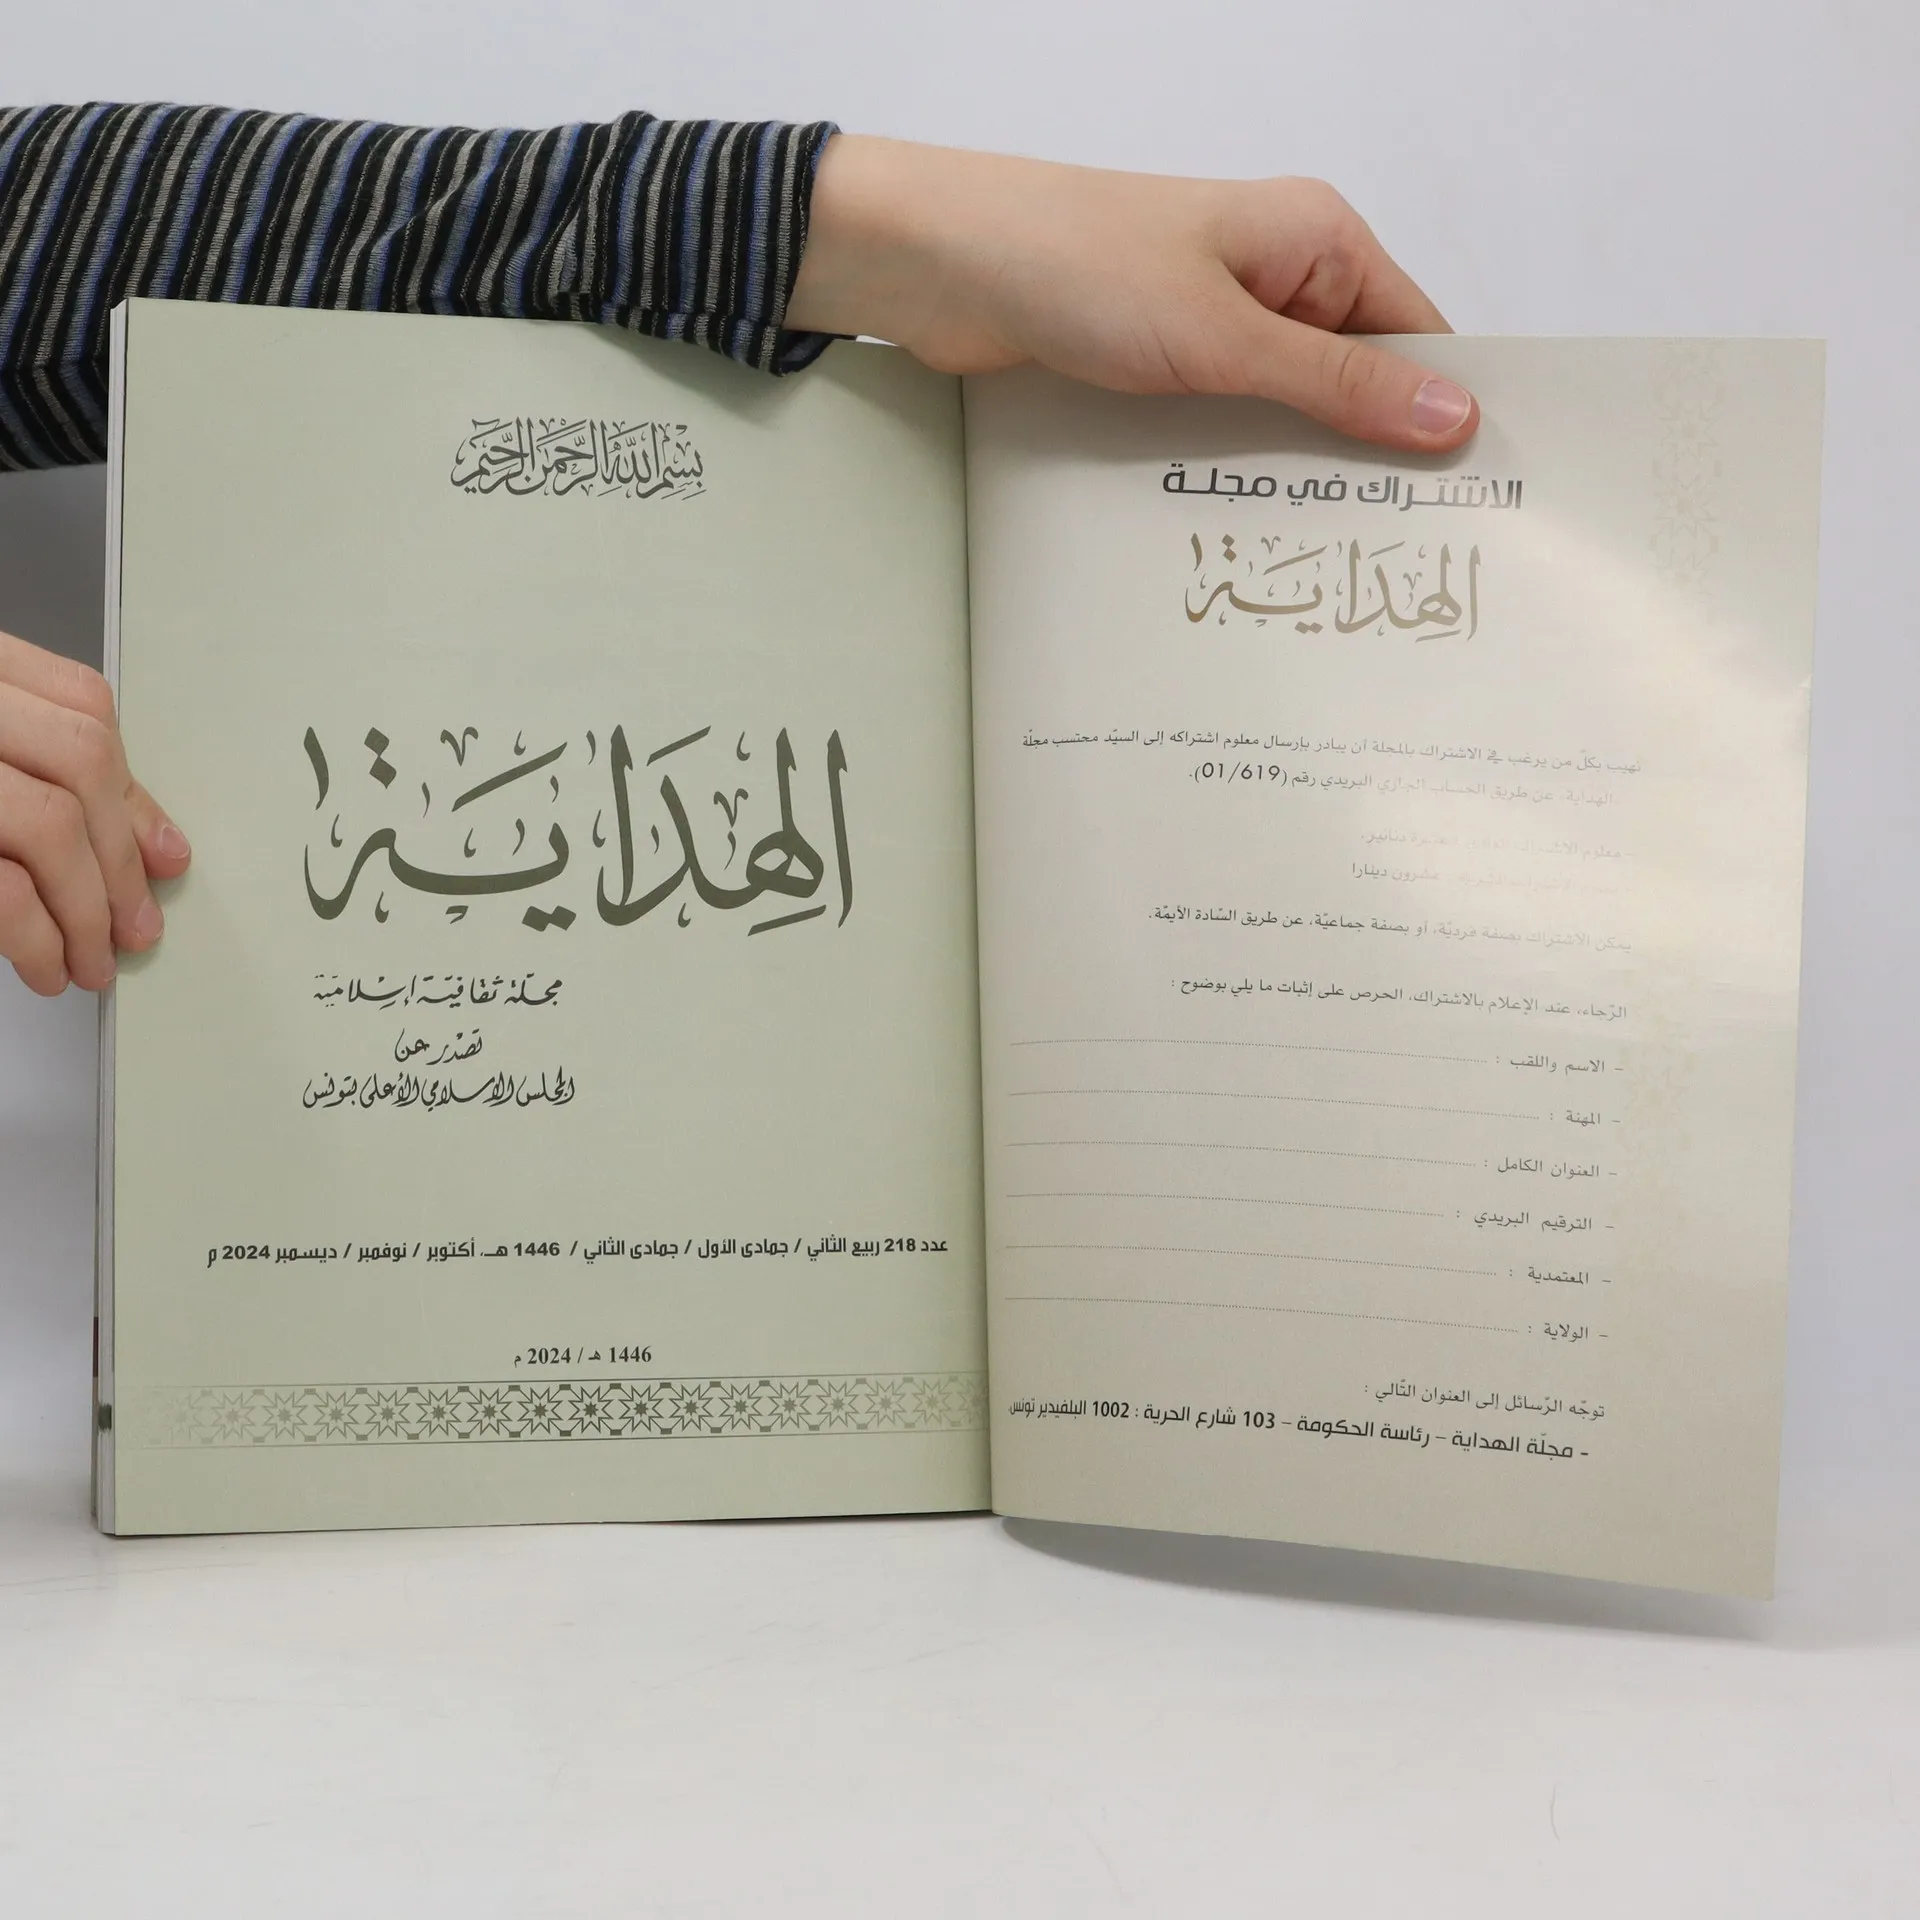 بسم الله الرحمن الرحيم
الهداية
مجلّة ثقافيّة إسلاميّة
تصدر عن
المجلس الإسلامي الأعلى بتونس
عدد 218 ربيع الثاني / جمادى الأول / جمادى الثاني / 1446 هـ. أكتوبر / نوفمبر / ديسمبر 2024 م
1446 هـ / 2024 م
الاشتراك في مجلة
الهداية
نهيب بكلّ من يرغب في الاشتراك بالمجلة أن يبادر بإرسال معلوم اشتراكه إلى السيّد محتسب مجلّة
الهداية، عن طريق الحساب الجاري البريدي رقم (01/619).
– معلوم الاشتراك دنانير.
– عشرون دينارا
يمكن الاشتراك بصفة فرديّة، أو بصفة جماعيّة، عن طريق السّادة الأيمّة.
الرّجاء، عند الإعلام بالاشتراك، الحرص على إثبات ما يلي بوضوح :
– الاسم واللقب :
– المهنة :
– العنوان الكامل :
– الترقيم البريدي :
– المعتمدية :
– الولاية :
توجّه الرّسائل إلى العنوان التّالي :
- مجلّة الهداية – رئاسة الحكومة – 103 شارع الحرية : 1002 البلفيدير تونس.